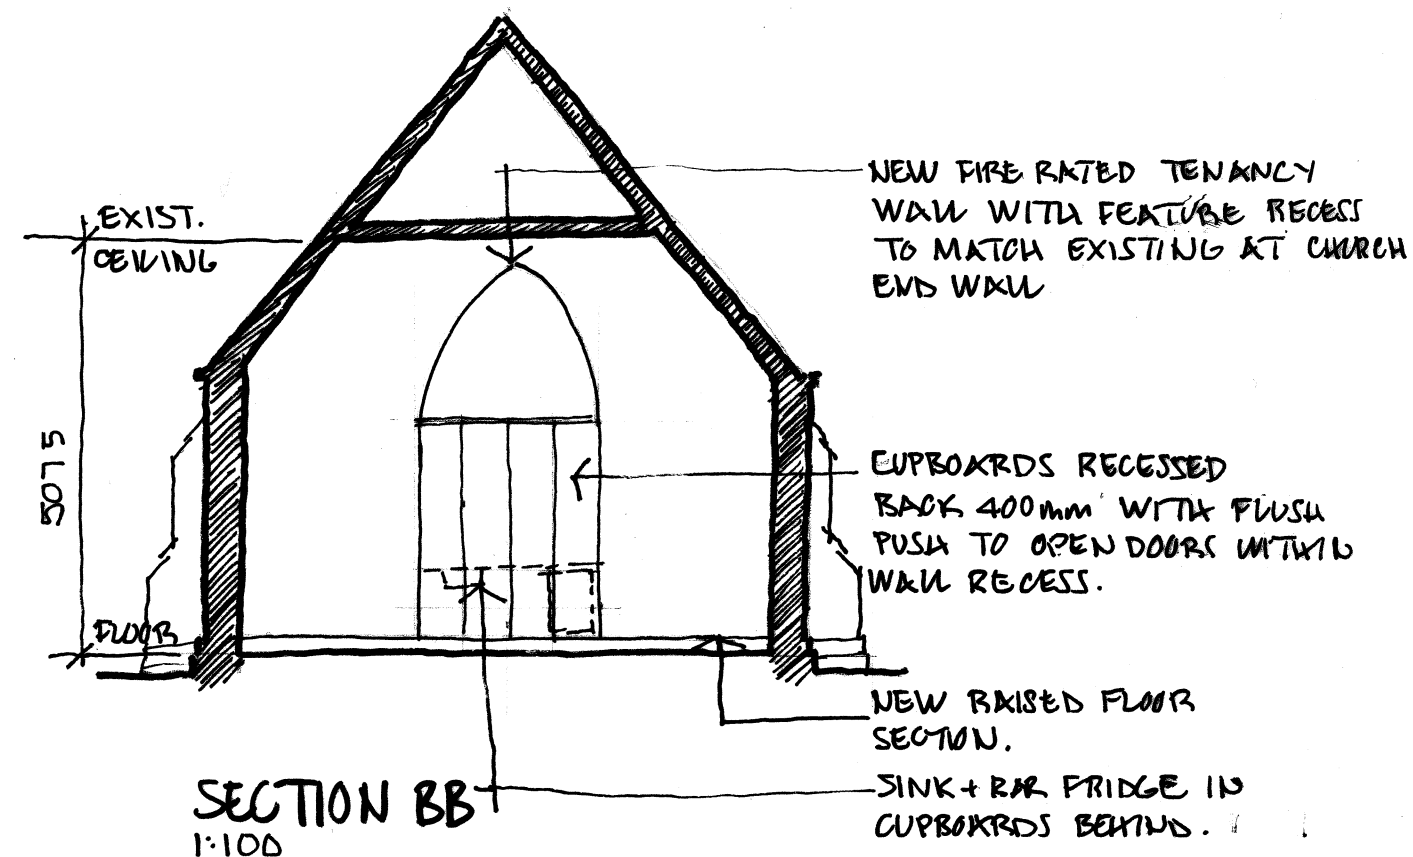 NEW FIRE RATED TENANCY
WALL WITH FEATURE RECESS
TO MATCH EXISTING AT CHURCH
END WALL
EXIST.
CEILING
5075
CUPBOARDS RECESSED
BACK 400mm WITH FLUSH
PUSH TO OPEN DOORS WITHIN
WALL RECESS.
FLOOR
NEW RAISED FLOOR
SECTION.
SINK + BAR FRIDGE IN
CUPBOARDS BEHIND.
SECTION BB
1:100